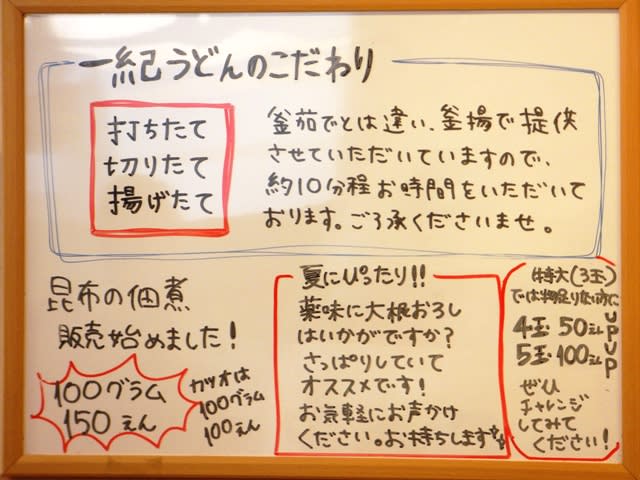 一紀うどんのこだわり
打ちたて
切りたて
揚げたて
釜茹でとは違い、釜揚で提供
させていただいていますので、
約10分程お時間をいただいて
おります。ご了承くださいませ。
昆布の佃煮
販売始めました!
100グラム
150えん
カツオは
100グラム
100えん
夏にぴったり!!
薬味に大根おろし
はいかがですか?
さっぱりしていて
オススメです!
お気軽にお声かけ
ください。お待ちします
特大(3玉)
では物足りない方に
4玉 50えんUP
5玉・100えんUP
ぜひ
チャレンジ
してみて
ください!